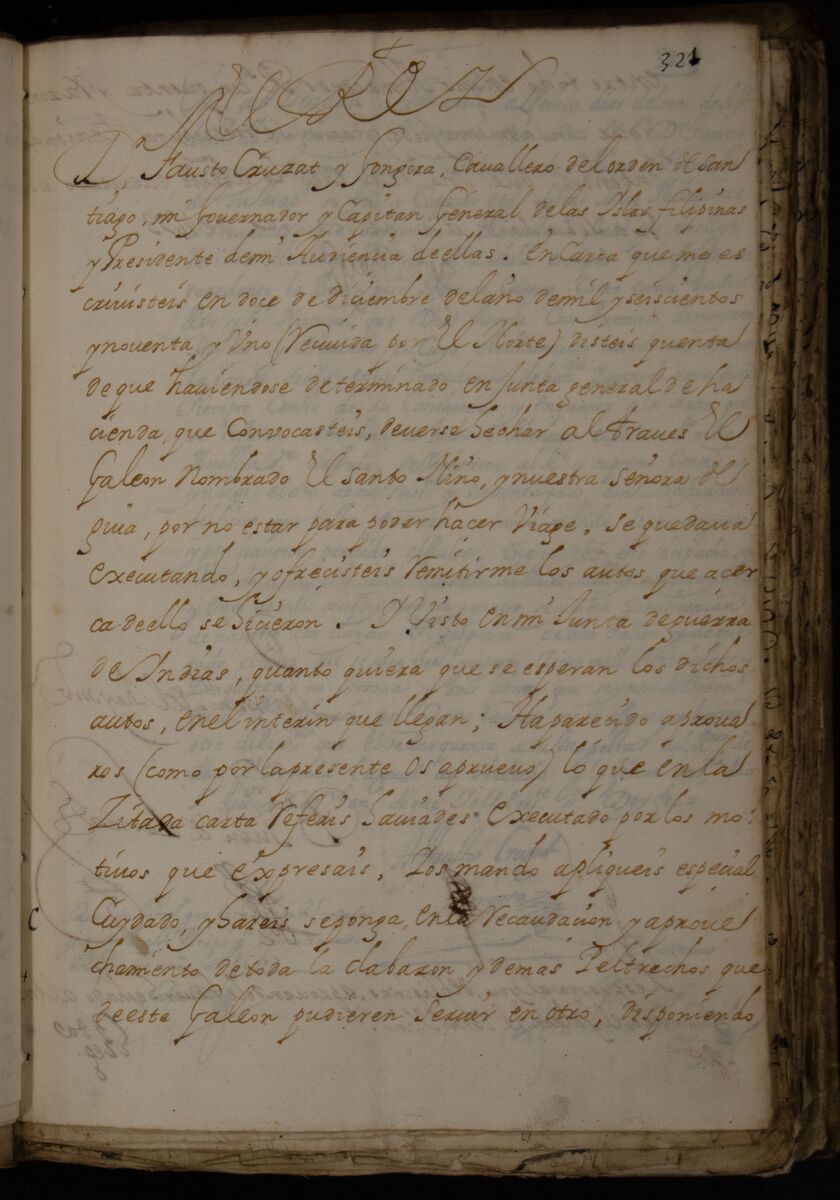 321
El Rey
Dn. Fausto Cruzat y Gongora, Cavallero del orden de San
tiago, mi Governador y Capitan General de las Islas filipinas
y Presidente de mi Audiencia de ellas. En Carta que me es
crivisteis en doce de Diciembre del año de mil y seiscientos
y noventa y Uno (Recivida por El Norte) disteis quenta
de que haviendose determinado en Junta general de ha
cienda, que Convocasteis, deverse hechar al traves El
Galeon Nombrado El Santo Niño, y nuestra Señora de
guia, por no estar para poder hacer Viage, se quedava
executando, y ofrecisteis remitirme los autos que acer
ca de ello se hicieron. Y Visto en mi Junta de guerra
de Indias, quanto quiera que se esperan los dichos
autos, en el interin que llegan; Ha parecido aprova
ros (como por la presente Os apruevo) lo que en la
Zitada carta Referis haviades executado por los mo-
tivos que expresais, Y os mando apliqueis especial
Cuydado, y hareis se ponga, en la Recaudacion y aprove
chamiento de toda la clabazon y demas Peltrechos que
de este Galeon pudieren servir en otro, disponiendo